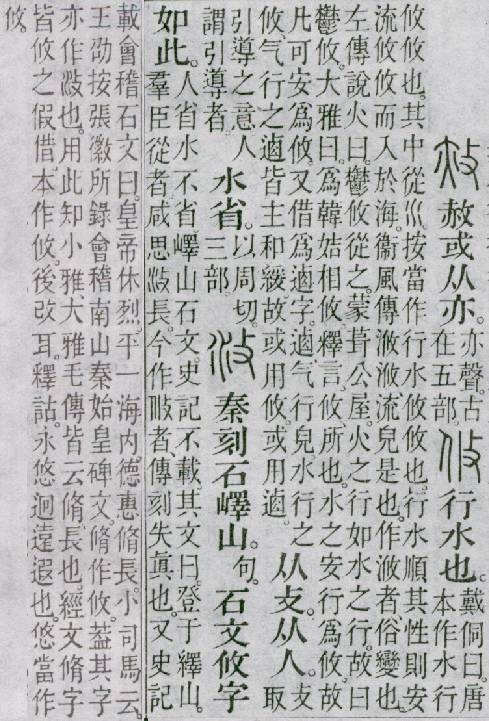 赦或从亦。亦聲。古
在五部。
行水也。戴侗曰。唐
本作水行
攸攸也。其中從巛。按當作行水攸攸也。行水順其性則安
流攸攸而入於海。衞風傳浟浟流皃是也。作浟者、俗變也。
左傳說火曰。鬱攸從之。蒙葺公屋。火之行如水之行。故曰
鬱攸。大雅曰。爲韓姞相攸。釋言。攸、所也。水之安行爲攸。故
凡可安爲攸。又借爲逌字。逌、气行皃。水行之
攸、气行之逌皆主和緩。故或用攸、或用逌。
从攴从人。攴
取
引導之意。人
謂引導者。
水省。以周切。
三部。
秦刻石嶧山。句。石文攸字
如此。人省水不省。嶧山石文、史記不載。其文曰。登于繹山。
羣臣從者。咸思長。今作者、傳刻失眞也。又史記
載會稽石文曰。皇帝休烈。平一海内。德惠脩長。小司馬云。
王劭按張徽所錄會稽南山秦始皇碑文。脩作攸。葢其字
亦作也。用此知小雅大雅毛傳皆云脩長也。經文脩字
皆攸之假借。本作攸。後改耳。釋詁。永悠迥遠遐也。悠當作
攸。